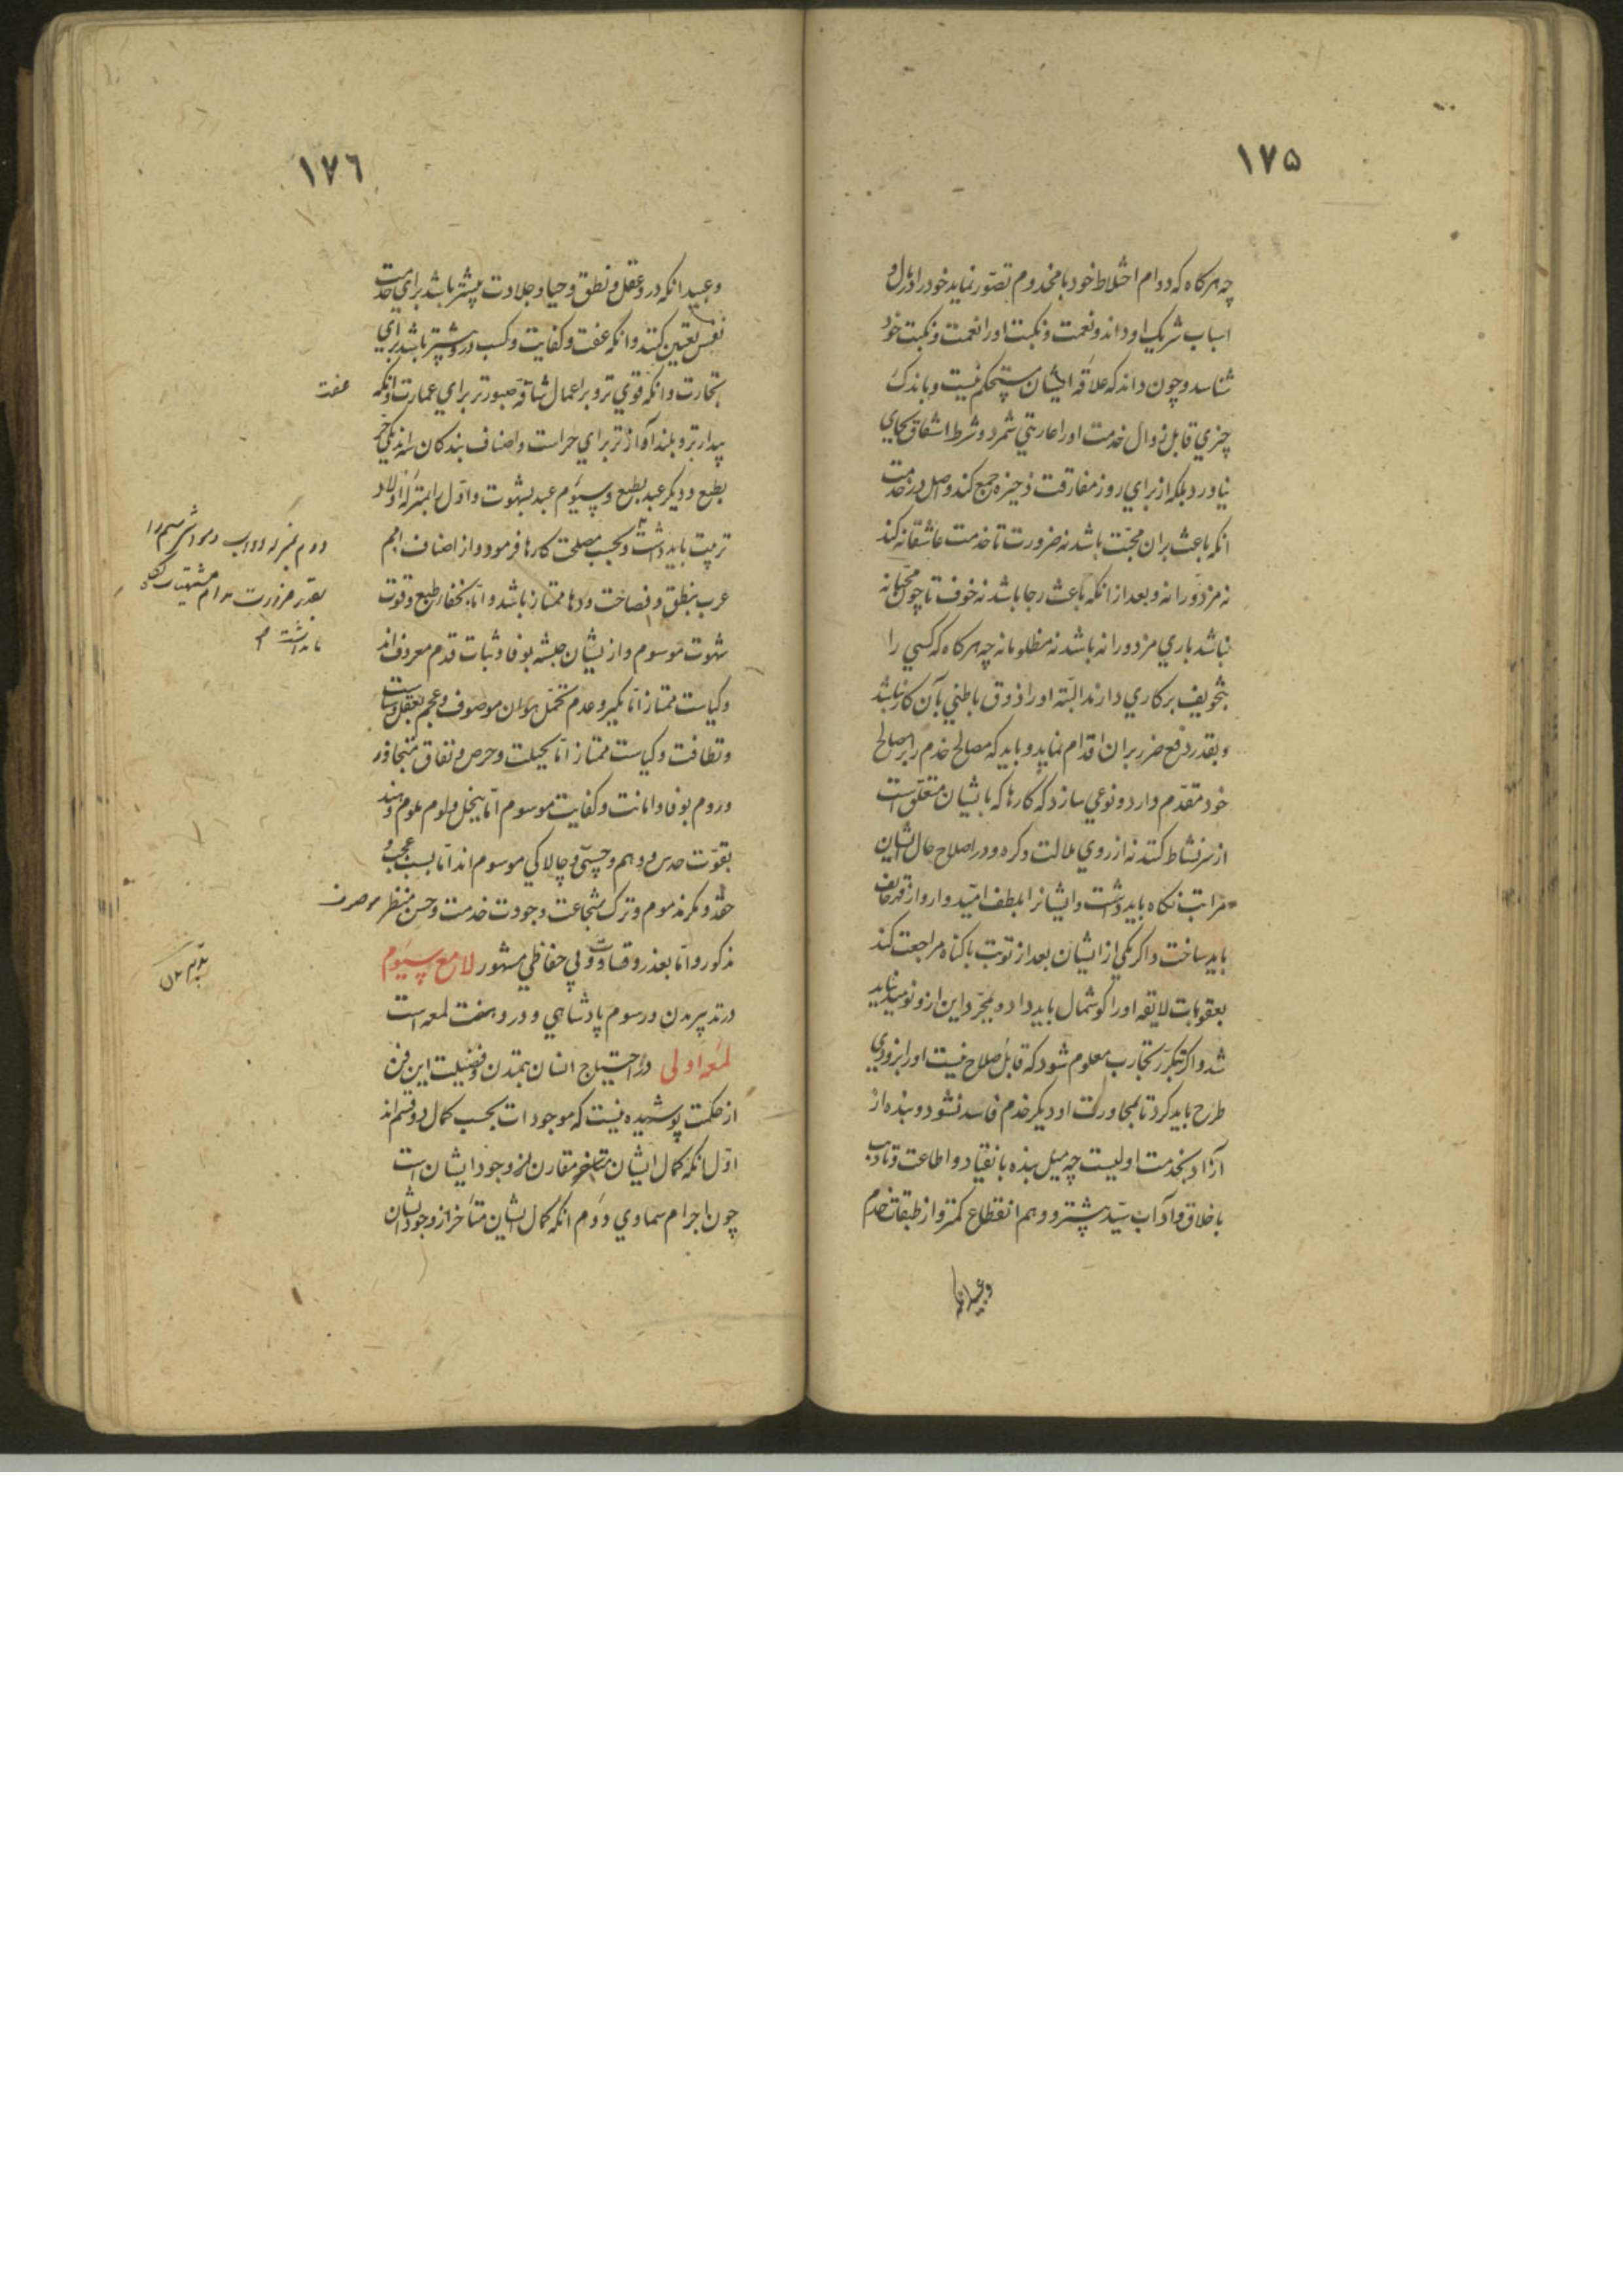 ١٧۵
چه هرکاه که دوام اختلاط خود با مخدوم تصوّر نماید خود را در مال و
اسباب شریک او داند و نعمت و نکبت او را نعمت و نکبت خود
شناسد و چون داند که علاقه ایشان مستحکم نیست و باندک
چیزي قابل زوال خدمت او را عاریتي شمرد و شرط اشفاق بجاي
نیاورد بلکه از براي روز مفارقت ذخیره جمع کند و اصل در خدمت
انکه باعث بران محبّت باشد نه ضرورت تا خدمت عاشقانه کند
نه مزدورانه و بعد از انکه باعث رجا باشد نه خوف تا چون محبّانه
نباشد باري مزدورانه باشد نه مظلومانه چه هرکاه که کسي را
بتخویف بر کاري دارند البتّه او را ذوق باطني بآن کار نباشد
و بقدر دفع ضرر بران اقدام نماید و باید که مصالح خدم را بر مصالح
خود مقدّم دارد و نوعي سازد که کارها که بایشان متعلّق است
از سر نشاط کنند نه از روي ملالت و کره و در اصلاح حال ایشان
مراتب نکاه باید داشت و ایشانرا بلطف امیدوار و از قهر خائف
باید ساخت و اکر یکي از ایشان بعد از توبت با کناه مراجعت کند
بعقوبات لایقه او را کوشمال باید داد و بمجرّد این از و نومید نباید
شد و اکر بتکرّر تجارب معلوم شود که قابل صلاح نیست او را بزودي
طرح باید کرد تا بمجاورت او دیکر خدم فاسد نشود و بنده از
آزاد بخدمت اولیست چه میل بنده بانقیاد و اطاعت و تادب
باخلاق و آداب سیّد بیشتر و وهم انقطاع کمتر و از طبقات خدم
و عبید انکه
١٧٦
و عبید انکه در و عقل و نطق و حیا و جلادت بیشتر باشد براي خدمت
نفس تعیین کنند و انکه عفت و کفایت و کسب در و بیشتر باشد براي
تجارت و انکه قوي تر و بر اعمال شاقّه صبورتر براي عمارت و انکه
عفت
بیدارتر و بلند آوازتر براي حراست و اصناف بندکان سه اند یکي حر
بطبع و دیکر عبد بطبع و سیّوم عبد بشهوت و اوّل را بمنزله اولاد
تربیت باید داشت و بحسب مصلحت کارها فرمود و از اصناف امم
عرب بنطق و فصاحت و دها ممتاز باشد و امّا بخفاء طبع و قوت
شهوت موسوم و از ایشان حبشه بوفا و ثبات قدم معروف اند
و کیاست ممتاز امّا بکبر و عدم تحمّل هوان موصوف و عجم بعقل و سیاست
و نظافت و کیاست ممتاز امّا بحیلت و حرص و نفاق متجاوز
و روم بوفا و امانت و کفایت موسوم امّا ببخل و لوم ملوم و هند
بقوّت حدس و وهم و چستي و چالاکي موسوم اند امّا بسبب عجب و
حقد و مکر مذموم و ترک بشجاعت و جودت خدمت و حسن منظر موصوف
مذکور و امّا بغدر و قساوت و بي حفاظي مشهور لامع سیّوم
در تدبیر مدن و رسوم پادشاهي و در و هفت لمعه است
لمعه اولی در احتیاج انسان بتمدن و فضیلت این فن
از حکمت پوشیده نیست که موجودات بحسب کمال دو قسم اند
اوّل انکه کمال ایشان مقارن وجود ایشان است
چون اجرام سماوي دوم انکه کمال ایشان متاخر از وجود ایشان
دوم بمنزله دواب و سیم را
بقدر ضرورت مشتهیات